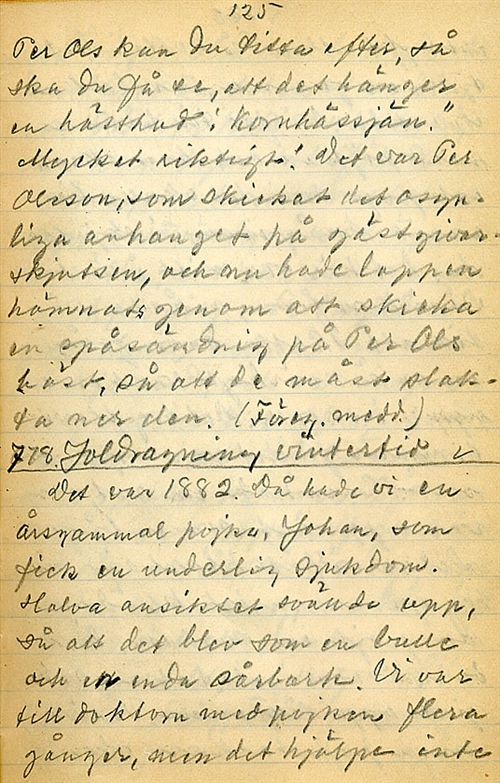 125
Per Ols kan Du titta efter, så
ska Du få se, att det hänger
en hästhud i kornhässjän."
Mycket riktigt! Det var Per
Olsson, som skickat det osyn-
liga anhanget på gästgivar-
skjutsen, och nu hade lappen
hämnats genom att skicka
en spåsändning på Per Ols
häst, så att de måst slak-
ta ner den. (Föreg. medd.)
778. Joldragning vintertid
Det var 1882. Då hade vi en
årsgammal pojke, Johan, som
fick en underlig sjukdom.
Halva ansiktet svände upp,
så att det blev som en bulle
och en enda sårbark. Vi var
till doktorn med pojken flera
gånger, men det hjälpe inte